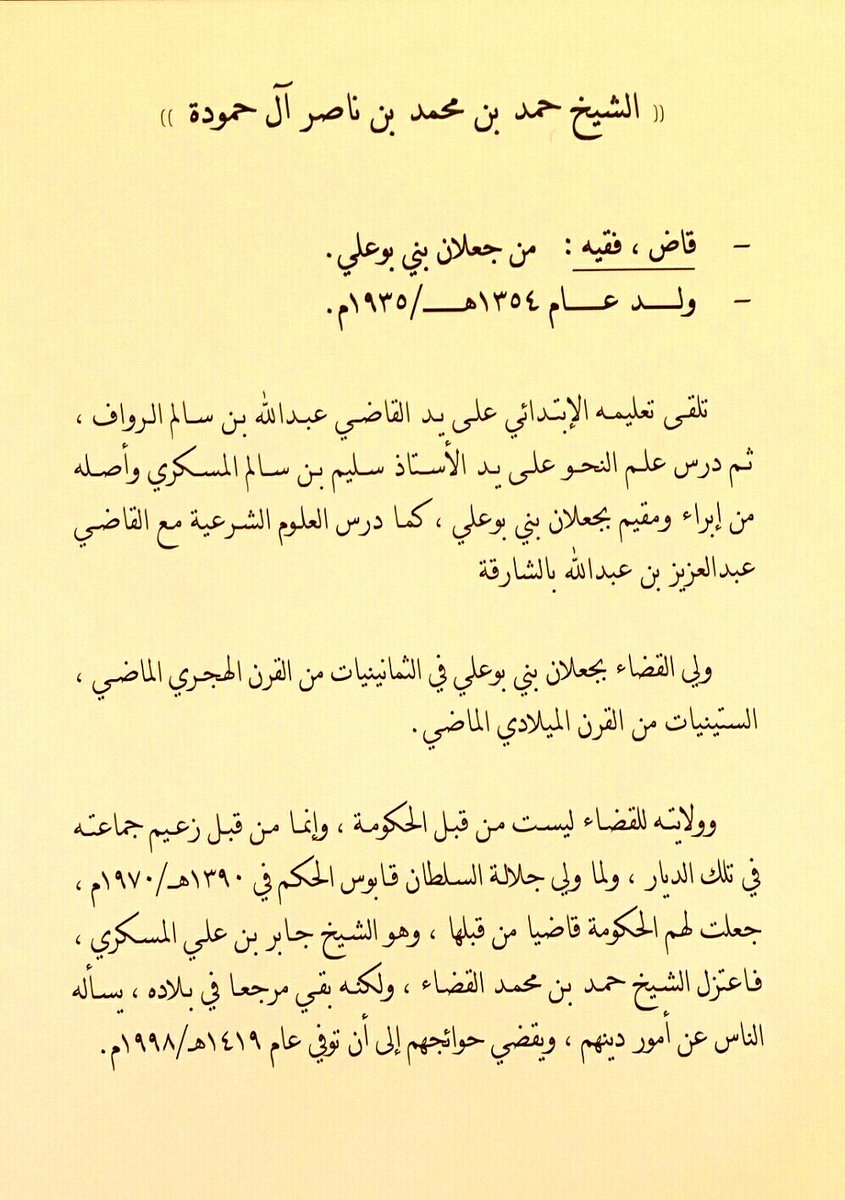 (( الشيخ حمد بن محمد بن ناصر آل حمودة ))
- قاض ، فقيه : من جعلان بني بوعلي.
- ولـــد عـــام ١٣٥٤هـــ/١٩٣٥م.
تلقى تعليمه الإبتدائي على يد القاضي عبدالله بن سالم الرواف ،
ثم درس علم النحو على يد الأستاذ سليم بن سالم المسكري وأصله
من إبراء ومقيم بجعلان بني بوعلي ، كما درس العلوم الشرعية مع القاضي
عبدالعزيز بن عبدالله بالشارقة
ولي القضاء بجعلان بني بوعلي في الثمانينيات من القرن الهجري الماضي ،
الستينيات من القرن الميلادي الماضي.
وولايته للقضاء ليست من قبل الحكومة ، وإنما من قبل زعيم جماعته
في تلك الديار ، ولما ولي جلالة السلطان قابوس الحكم في ١٣٩٠هـ/١٩٧٠م ،
جعلت لهم الحكومة قاضيا من قبلها ، وهو الشيخ جابر بن علي المسكري ،
فاعتزل الشيخ حمد بن محمد القضاء ، ولكنه بقي مرجعا في بلاده ، يسأله
الناس عن أمور دينهم ، ويقضي حوائجهم إلى أن توفي عام ١٤١٩هـ/١٩٩٨م.